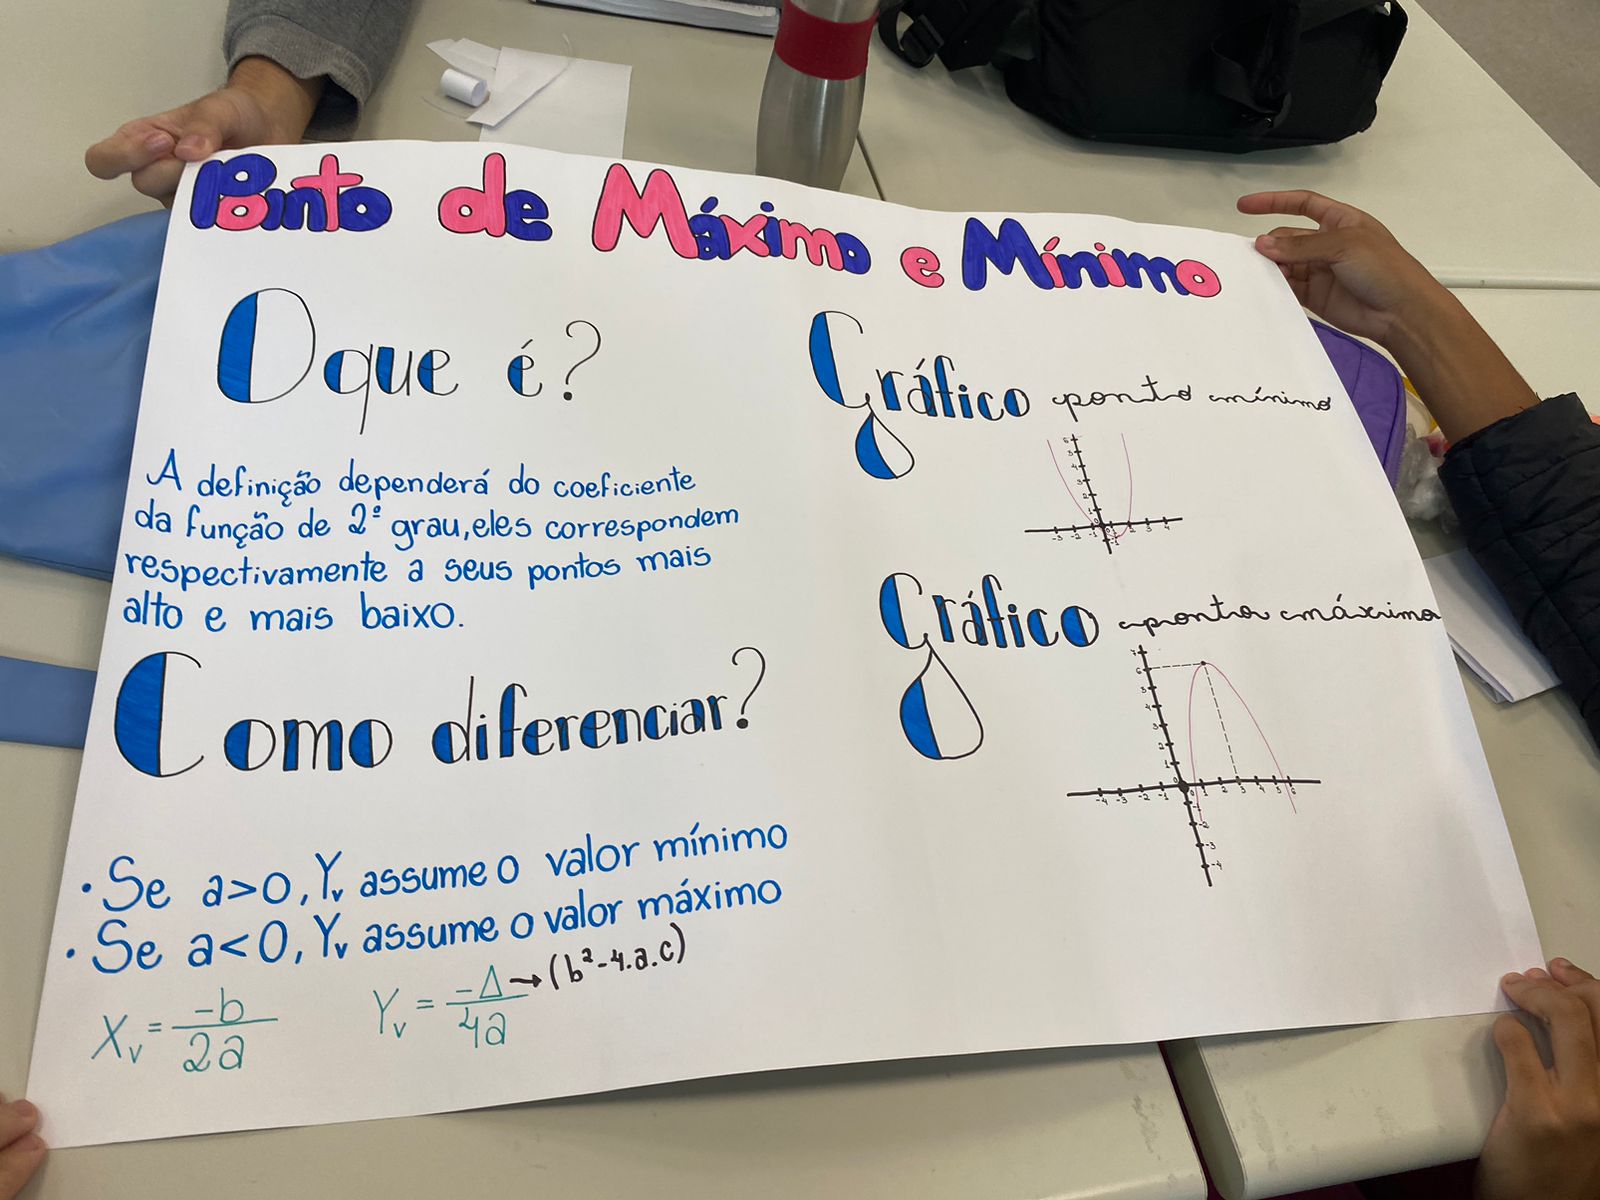 Ponto de Máximo e Mínimo
O que é?
A definição dependerá do coeficiente
da função de 2º grau, eles correspondem
respectivamente a seus pontos mais
alto e mais baixo.
Como diferenciar?
• Se a>0, Yv assume o valor mínimo
• Se a<0, Yv assume o valor máximo
Xv = -b/2a
Yv = -Δ/4a → (b²-4.a.c)
Gráfico ponto mínimo
Gráfico ponto máximo